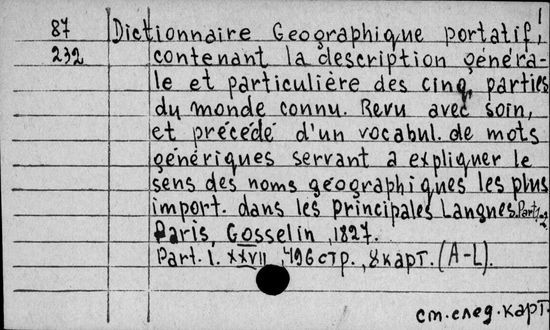 87 Dictionnaire Geographique portatif,
232 contenant la description généra-
le et particulière des cinq parties
du monde connu. Revu avec soin,
et précédé d'un vocabul. de mots
génériques servant a expliquer le
sens des noms géographiques les plus
import. dans les principales Langues. Part 1-2.
Paris, Gosselin, 1827.
Part. 1. XXVII, 496 стр., 8 карт. (A-L).
см. след. карт.